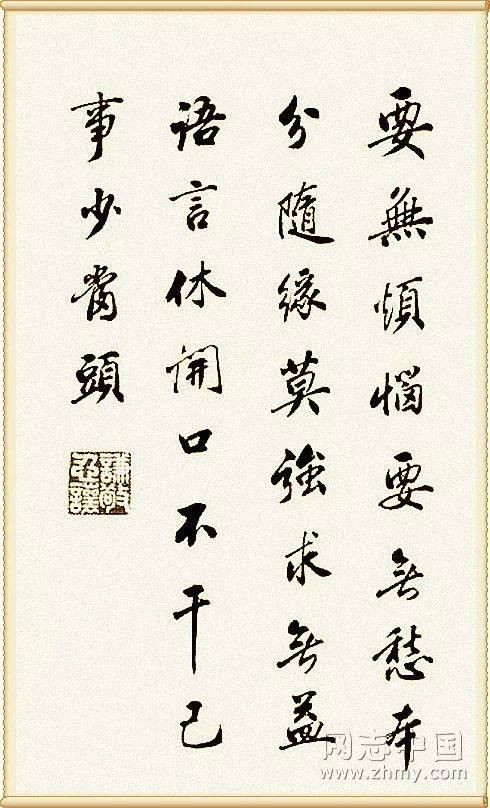 要無煩惱要無愁本
分隨緣莫強求無益
語言休開口不干己
事少當頭
网志中国
www.zhmy.com